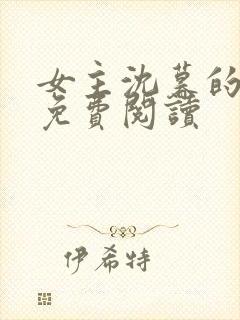 女主沈慕的
免費閱讀
伊希特